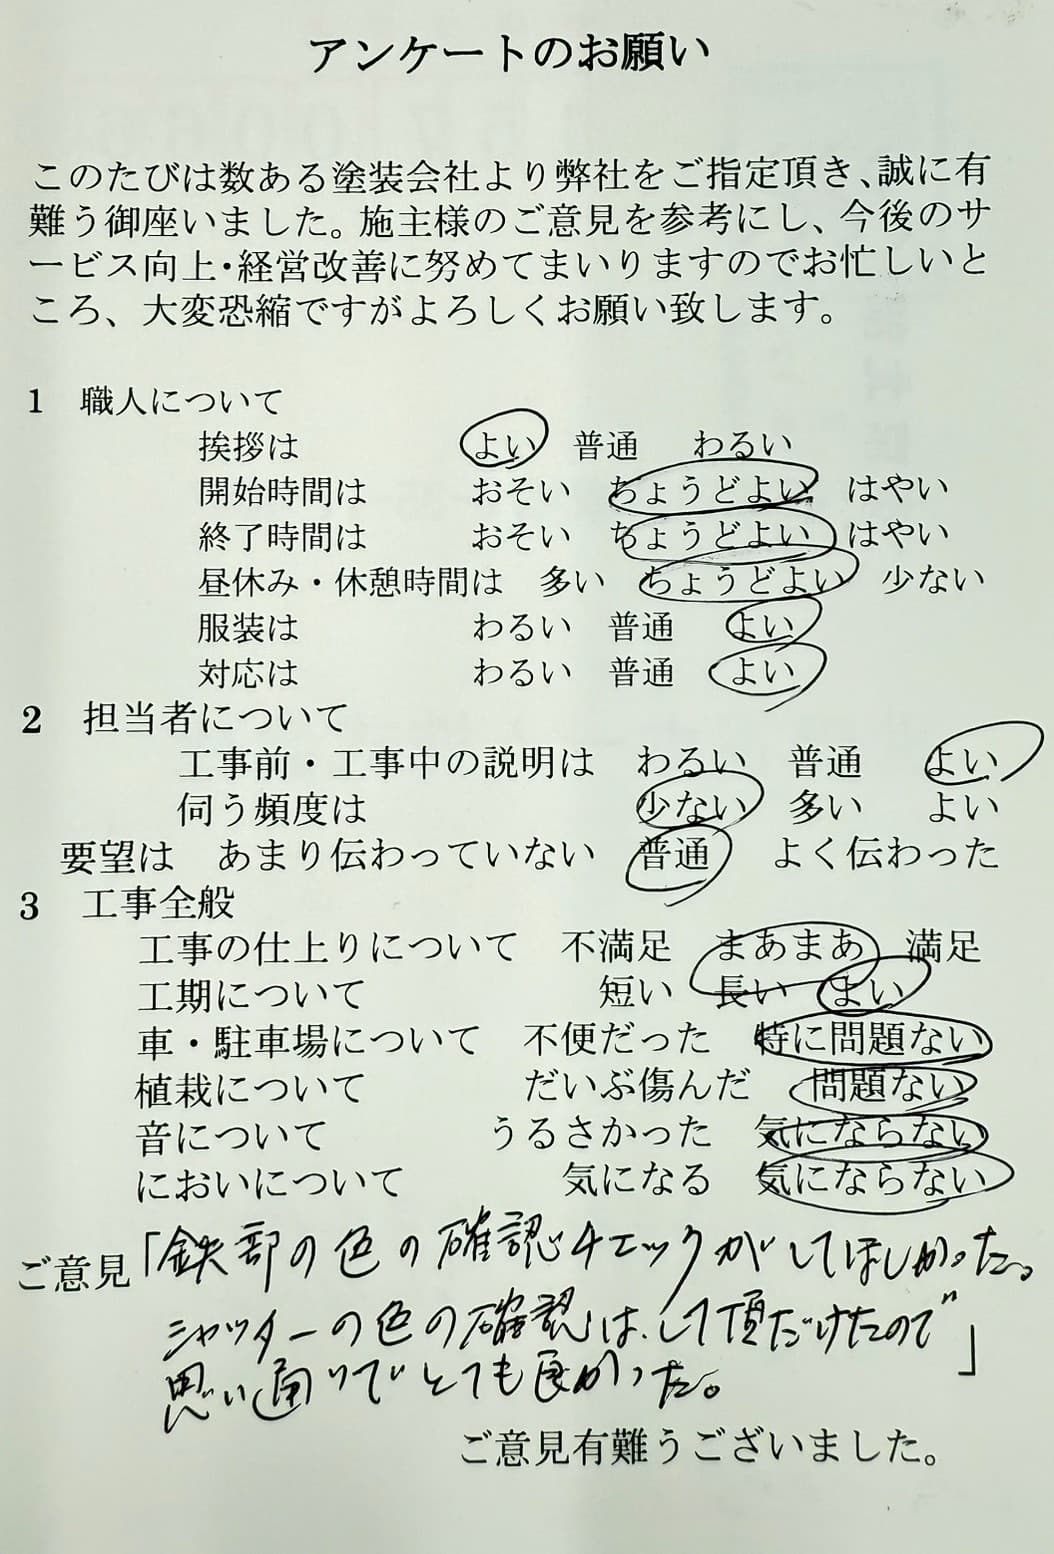 アンケートのお願い
このたびは数ある塗装会社より弊社をご指定頂き、誠に有
難う御座いました。施主様のご意見を参考にし、今後のサ
ービス向上・経営改善に努めてまいりますのでお忙しいと
ころ、大変恐縮ですがよろしくお願い致します。
1 職人について
挨拶は よい 普通 わるい
開始時間は おそい ちょうどよい はやい
終了時間は おそい ちょうどよい はやい
昼休み・休憩時間は 多い ちょうどよい 少ない
服装は わるい 普通 よい
対応は わるい 普通 よい
2 担当者について
工事前・工事中の説明は わるい 普通 よい
伺う頻度は 少ない 多い よい
要望は あまり伝わっていない 普通 よく伝わった
3 工事全般
工事の仕上りについて 不満足 まあまあ 満足
工期について 短い 長い よい
車・駐車場について 不便だった 特に問題ない
植栽について だいぶ傷んだ 問題ない
音について うるさかった 気にならない
においについて 気になる 気にならない
ご意見「鉄部の色の確認チェックがしてほしかった。
シャッターの色の確認は、して頂だけたので
思い通りでとても良かった。」
ご意見有難うございました。